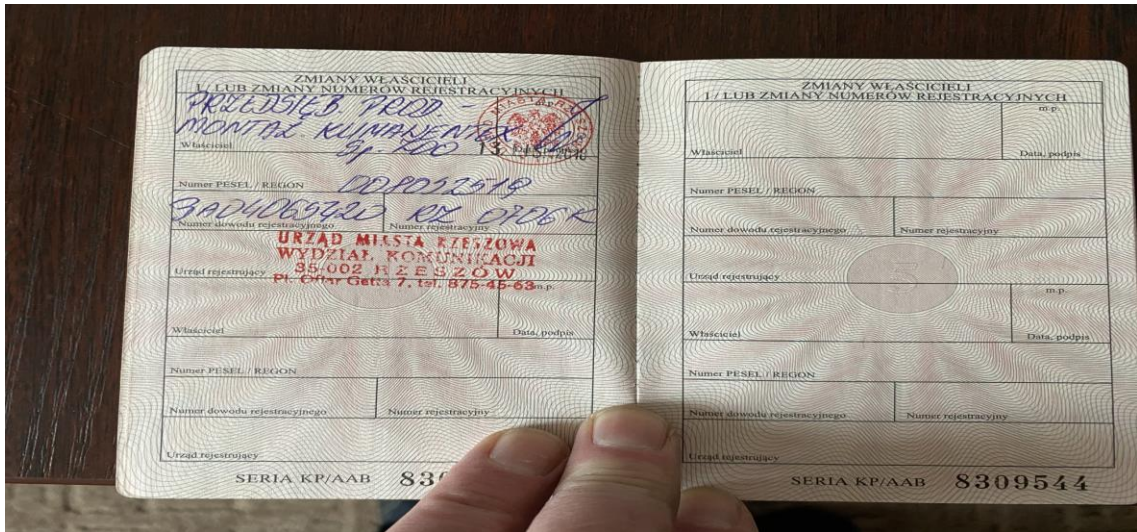 ZMIANY WŁAŚCICIELI
I / LUB ZMIANY NUMERÓW REJESTRACYJNYCH
PRZEDSIĘB PROD. -
MONTAŻ KLIMAWENTEX
Sp. ZOO
Właściciel
Numer PESEL / REGON
Numer dowodu rejestracyjnego Numer rejestracyjny
URZĄD MIASTA RZESZOWA
WYDZIAŁ KOMUNIKACJI
35-002 RZESZÓW
Urząd rejestrujący
Pl. Ofiar Getta 7, tel. 875-45-63
m.p.
Właściciel Data, podpis
Numer PESEL / REGON
Numer dowodu rejestracyjnego Numer rejestracyjny
Urząd rejestrujący
SERIA KP/AAB 83
ZMIANY WŁAŚCICIELI
I / LUB ZMIANY NUMERÓW REJESTRACYJNYCH
m.p.
Właściciel Data, podpis
Numer PESEL / REGON
Numer dowodu rejestracyjnego Numer rejestracyjny
Urząd rejestrujący
m.p.
Właściciel Data, podpis
Numer PESEL / REGON
Numer dowodu rejestracyjnego Numer rejestracyjny
Urząd rejestrujący
SERIA KP/AAB 8309544